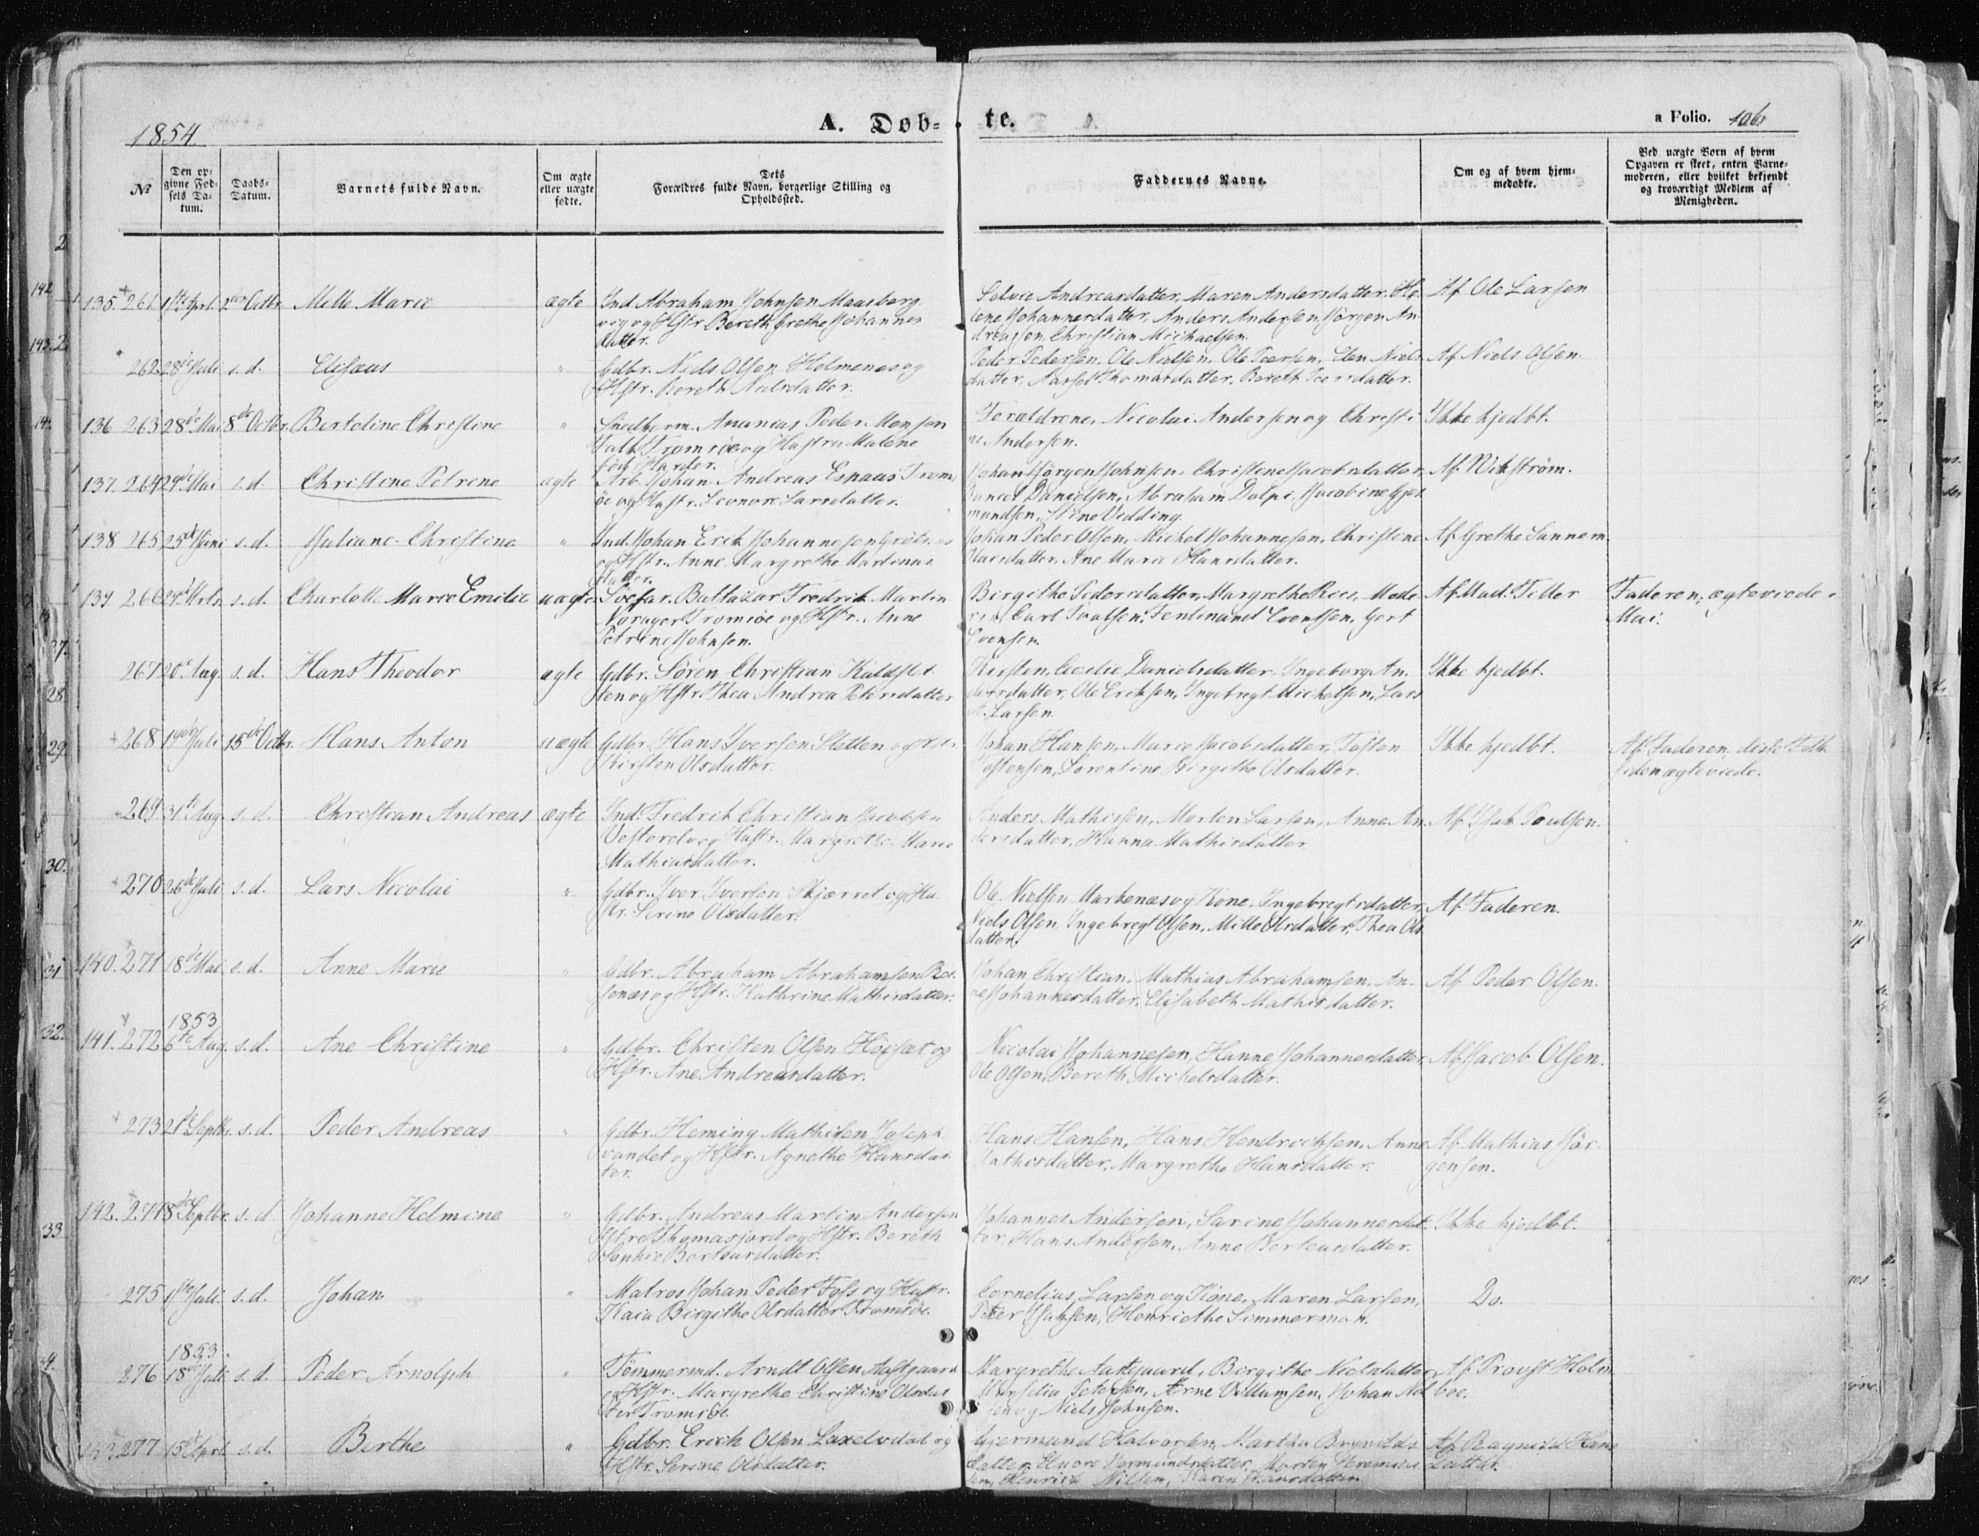 1854
A. Døb-
te.
a Folio. 106
№
Den op-
givne Fød-
sels Da-
tum.
Daabs-
Datum.
Barnets fulde Navn.
Om ægte
eller uægte
fødte.
Dets
Forældres fulde Navn, borgerlige Stilling og
Opholdssted.
Faddernes Navne.
Om og af hvem hjem-
medøbte.
Ved uægte Børn af hvem
Opgaven er skeet, enten Barne-
moderen, eller hvilket bekjendt
og troværdigt Medlem af
Menigheden.
135. 261 1ste April 2den Octbr. Mette Marie ægte Ind. Abraham Johnsen Maasberg-
vig og Hstr. Bereth Grethe Johannes
datter.
Andreasdatter, Maren Andersdatter, He-
lene Johannesdatter, Anders Andersen, Jørgen An-
dreassen, Christian Michaelsen.
Af Ole Larsen
262 28de Juli s. d. Elisæus " Gdbr. Niels Olsen Holmenes og
Hstr. Bereth Nielsdatter.
Peder Pedersen, Ole Nielsen, Ole Peersen, Elen Niels
datter, Thomasdatter, Bereth Peersdatter.
Af Niels Olsen.
136 263 28de Mai 8de Octbr. Bertoline Christine " Ananias Peder Monsen
Falk Tromsøe og Hustru Malene
fød Harder.
Forældrene, Nicolai Andersen og Christi
ne Andersen.
Ikke hjedbt.
137. 264 29de Mai s. d Christine Petrine ægte Arb. Johan Andreas Esnaas Trom
øe og Hustr. Leonore Larsdatter.
Johan Jørgen Johnsen, Christene Jacobsdatter,
Daniel Danielsen, Abraham Dalpi, Jacobine Gjer
mundsen, Stine Vedding.
Af Wikstrøm.
138 265 25de Juni s. d. Juliane Christine " Ind. Johan Erik Johannesen Grøtnæs
og Hstr. Anne Margrethe Martinus
datter.
Johan Peder Olsen, Mickel Johannesen, Christene
Hansdatter, Ane Marie Hansdatter.
Af Grethe Sannem.
139 266 s. d. Charlotte Marie Emilie uægte Søefar. Baltazar Fredrik Martin
Norager Tromsøe og Hstr. Anne
Petrine Johnsen.
Birgithe Pedersdatter, Margrethe Ries, Mode-
ren, Carl Poulsen, Ferdinand Evensen, Gert
Evensen.
Af Mad. Teller
Faderen; ægteviede i
Mai.
267 20de Aug. s. d. Hans Theodor ægte Gdbr. Søren Christian Kaldslet
ten og Hstr. Thea Andrea Petersdatter
Kirsten Cecelie Danielsdatter, Ingeborg An-
dersdatter, Ole Eriksen, Ingebrigt Michelsen, Lars
Larsen.
Ikke hjedbt.
268 Juli 15de Octbr. Hans Anton uægte Gdbr. Hans Iversen Sletten og Hstr.
Kirsten Olsdatter.
Johan Hansen, Marie Jacobsdatter, Tosten
Tostensen, Lorentine Birgithe Olsdatter.
Ikke hjedbt.
Af Faderen, disse Folk
siden ægteviede.
269. 31te Aug. s. d. Christian Andreas ægte Ind. Fredrik Christian Jacobsen
og Hustr. Margrethe Marie
Mathiasdatter.
Anders Mathisen, Morten Larsen, Anne An
dersdatter, Hanna Mathisdatter.
Af Isak Poulsen.
270 26de Juli s. d. Lars Nicolai " Gdbr. Iver Iversen Skjærret og Hu
str. Serine Olsdatter.
Ole Nielsen Markenæs og Kone, Ingebregtsdatter,
Niels Olsen, Ingebregt Olsen, Mille Olsdatter, Thea Ols
datter.
Af Faderen.
140. 271 18de Mai s. d. Anne Marie " Gdbr. Abraham Abrahamsen
og Hstr. Kathrine Mathisdatter.
Johan Christian, Mathias Abrahamsen, An-
ne Johannesdatter, Elisabeth Mathisdatter.
Af Peder Olsen.
1853
141. 272 6te Aug. s. d. Ane Christine " Gdbr. Christen Olsen Høisæt og
Hstr. Ane Andreasdatter.
Nicolai Johannesen, Hanne Johannesdatter,
Ole Olsen, Bereth Michelsdatter.
Af Jacob Olsen.
273 Septbr. s. d. Peder Andreas " Gdbr. Heming Mathisen Joseph
vandet og Hstr. Agnethe Hansdat
ter.
Hans Hansen, Hans Hendrichsen, Anne
Mathisdatter, Margrethe Hansdatter.
Af Mathias Jør-
gensen.
142. 274 8de Septbr. s. d Johanne Helmine " Gdbr. Andreas Martin Andersen
Thomasjord og Hstr. Bereth
Sophie Berteusdatter.
Johannes Andersen, Sarine Johannesdat-
ter, Hans Andersen, Anne Berteusdatter.
Ikke hjedbt.
275 1ste Juli s. d. Johan " Matros Johan Peder Foss og Hustr.
Kaia Birgithe Olsdatter Tromsøe.
Cornelius Larsen og Kone, Maren Larsen,
Peter Isaksen, Henriethe Simmerman.
Do.
1853.
276 18de Juli s. d. Peder Arnolph " Tømmermd. Arndt Olsen Aastgaard
og Hstr. Margrethe Christine Olsdat
ter Tromsøe.
Margrethe Aastgaard, Birgithe Nielsdatter,
Petersen, Arne Villumsen, Johan
og Niels Johnsen.
Af Provst Holm
boe.
143 277 15de April s. d Berthe " Gdbr. Erich Olsen Laxelvdal og
Hstr. Serine Olsdatter.
Gjermund Halvorsen, Martha Brynilds
datter, Elnore Gormundsdatter, Morten Jeremias
sen, Henrich Nilsen, Karen Hansdatter
Af Ragnild Hans
datter